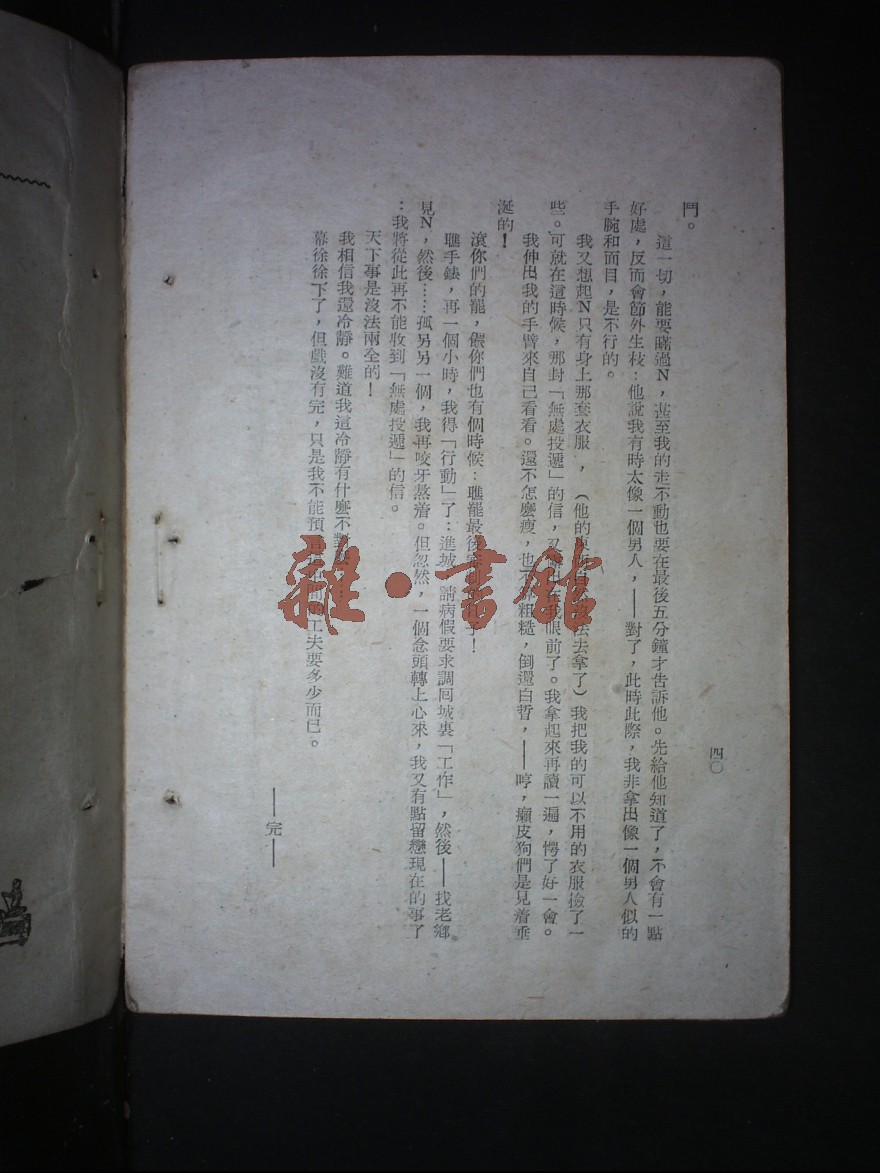 四〇
門。
這一切，能要瞞過N，甚至我的走不動也要在最後五分鐘才告訴他。先給他知道了，不會有一點
好處，反而會節外生枝：他說我有時太像一個男人，——對了，此時此際，我非拿出像一個男人似的
手腕和面目，是不行的。
我又想起N只有身上那套衣服，（他的 去拿了）我把我的可以不用的衣服撿了一
些。可就在這時候，那封「無處投遞」的信，又 眼前了。我拿起來再讀一遍，愕了好一會。
我伸出我的手臂來自己看看。還不怎麼瘦，也不 粗糙，倒還白皙，——哼，癩皮狗們是見着垂
涎的！
滾你們的罷，儂你們也有個時候：瞧罷最後 手！
瞧手錶，再一個小時，我得「行動」了：進城， 請病假要求調囘城裏「工作」，然後——找老鄉
見N，然後……孤另另一個，我再咬牙熬着。但忽然，一個念頭轉上心來，我又有點留戀現在的事了
：我將從此再不能收到「無處投遞」的信。
天下事是沒法兩全的！
我相信我還冷靜。難道我這冷靜有什麼不對
幕徐徐下了，但戲沒有完，只是我不能預 間的工夫要多少而已。
——完——
雜·書館